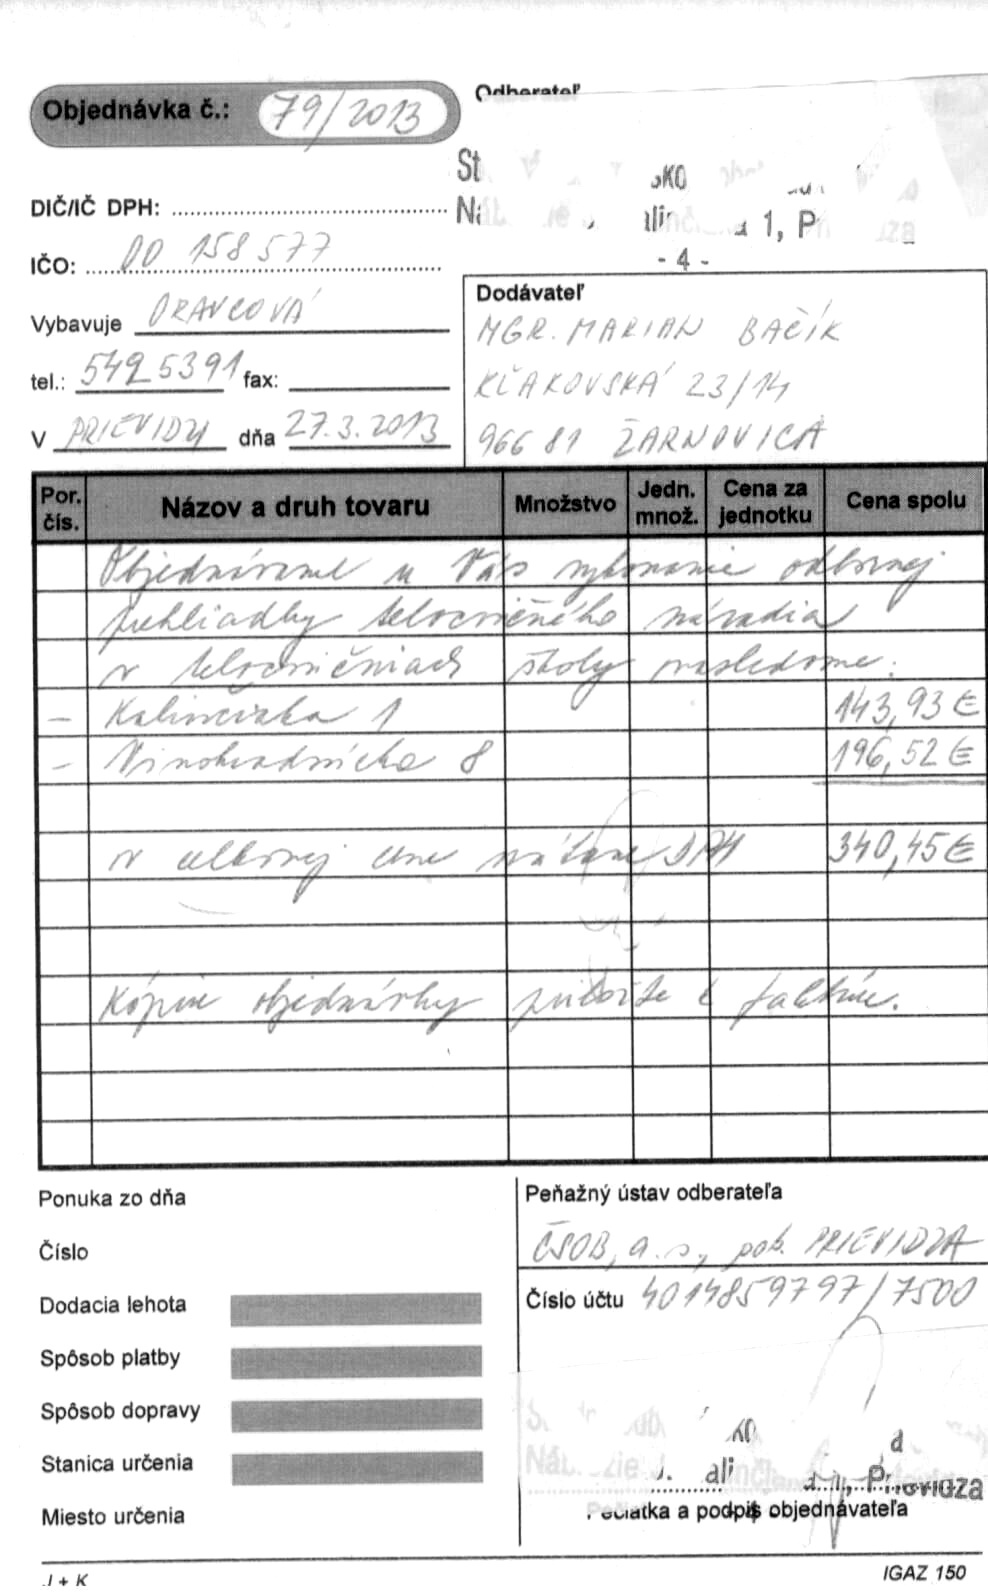 Objednávka č.: 79/2013
Odberateľ
DIČ/IČ DPH:
IČO: 00 158577
- 4 -
Vybavuje ORAVCOVÁ
tel.: 5425391 fax:
V PRIEVIDZI dňa 27.3.2013
Dodávateľ
MGR. MARIAN BAČÍK
KĽAKOVSKÁ 23/14
966 81 ŽARNOVICA
Por. čís. Názov a druh tovaru Množstvo Jedn. množ. Cena za jednotku Cena spolu
Objednávame u Vás vykonanie odbornej
prehliadky telocvičného náradia
v telocvičniach školy nasledovne:
- Kalinčiaka 1 143,93 €
- Vinohradnícka 8 196,52 €
v celkovej cene vrátane DPH 340,45 €
Kópiu objednávky priložte k faktúre.
Ponuka zo dňa
Číslo
Dodacia lehota
Spôsob platby
Spôsob dopravy
Stanica určenia
Miesto určenia
Peňažný ústav odberateľa
ČSOB, a.s., pob. PRIEVIDZA
Číslo účtu 4014859797/7500
Prievidza
Pečiatka a podpis objednávateľa
J + K
IGAZ 150